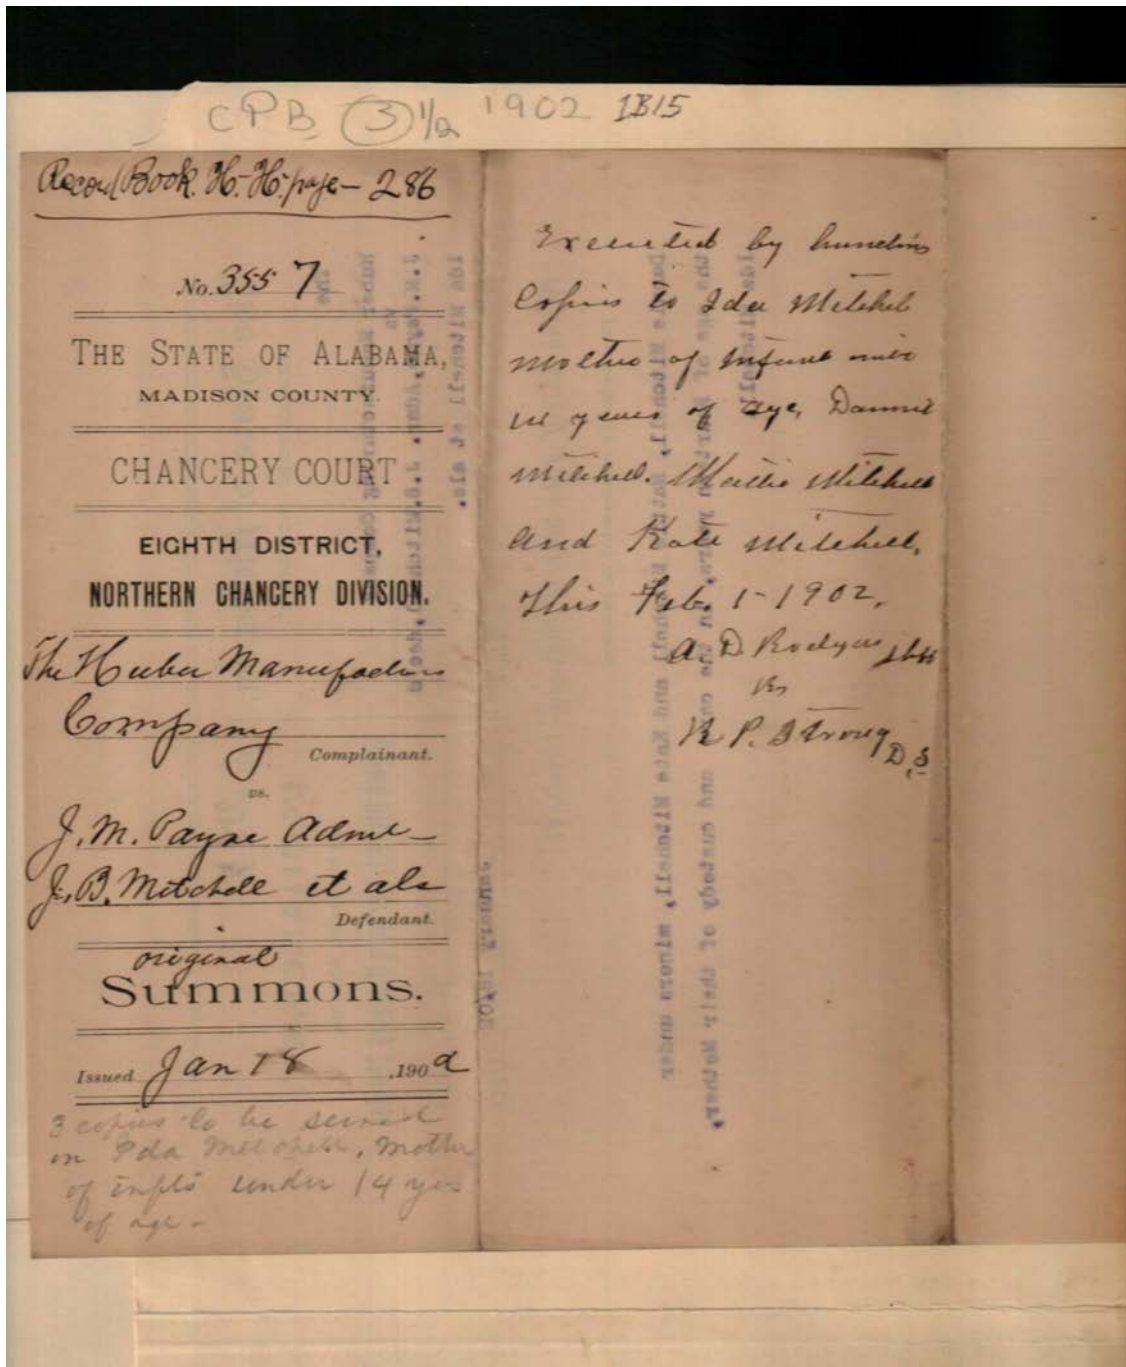 CPB 3 1/2 1902 IB15
Record Book. H-H-page- 286
No. 3557
THE STATE OF ALABAMA,
MADISON COUNTY.
CHANCERY COURT
EIGHTH DISTRICT,
NORTHERN CHANCERY DIVISION.
The Huber Manufacturing
Company
Complainant.
vs.
J. M. Payne Admr
J. B. Mitchell et als
Defendant.
original
Summons.
Issued Jan 18 ,1902
3 copies to be served
on Ida Mitchell, mother
of infts under 14 yrs
of age -
Executed by handing
Copies to Ida Mitchel
mother of Infant under
14 years of age, Dannie
Mitchell. Mattie Mitchell
and Kate Mitchell,
This Feb. 1 - 1902.
A. D. Rodgers Shff
By
R. P. Strong D.S